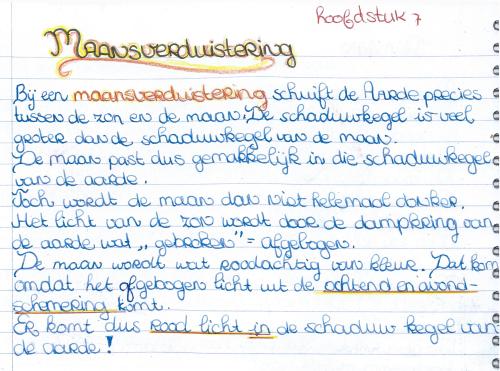 Hoofdstuk 7
Maansverduistering
Bij een maansverduistering schuift de Aarde precies
tussen de zon en de maan. De schaduwkegel is veel
groter dan de schaduwkegel van de maan.
De maan past dus gemakkelijk in die schaduwkegel
van de aarde.
Toch wordt de maan dan niet helemaal donker.
Het licht van de zon wordt door de dampkring van
de aarde wat „gebroken" = afgebogen.
De maan wordt wat roodachtig van kleur. Dat kom
omdat het afgebogen licht uit de ochtend en avond-
schemering komt.
Er komt dus rood licht in de schaduw kegel van
de aarde!